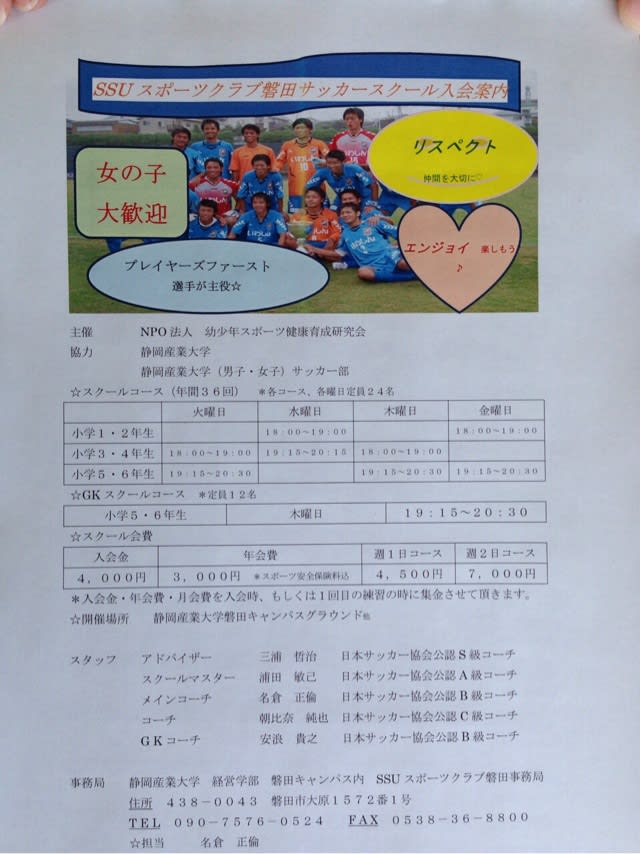 SSU スポーツクラブ磐田サッカースクール入会案内
女の子
大歓迎
リスペクト
仲間を大切に♡
エンジョイ 楽しもう
♪
プレイヤーズファースト
選手が主役☆
主催 NPO法人 幼少年スポーツ健康育成研究会
協力 静岡産業大学
静岡産業大学（男子・女子）サッカー部
☆スクールコース（年間３６回） ＊各コース、各曜日定員２４名
火曜日 水曜日 木曜日 金曜日
小学１・２年生 １８：００～１９：００ １８：００～１９：００
小学３・４年生 １８：００～１９：００ １９：１５～２０：１５ １８：００～１９：００
小学５・６年生 １９：１５～２０：３０ １９：１５～２０：３０ １９：１５～２０：３０
☆GKスクールコース ＊定員１２名
小学５・６年生 木曜日 １９：１５～２０：３０
☆スクール会費
入会金 年会費 週１日コース 週２日コース
４，０００円 ３，０００円 ＊スポーツ安全保険料込 ４，５００円 ７，０００円
＊入会金・年会費・月会費を入会時、もしくは１回目の練習の時に集金させて頂きます。
☆開催場所 静岡産業大学磐田キャンパスグラウンド他
スタッフ アドバイザー 三浦 哲治 日本サッカー協会公認Ｓ級コーチ
スクールマスター 浦田 敏己 日本サッカー協会公認Ａ級コーチ
メインコーチ 名倉 正倫 日本サッカー協会公認Ｂ級コーチ
コーチ 朝比奈 純也 日本サッカー協会公認Ｃ級コーチ
ＧＫコーチ 安浪 貴之 日本サッカー協会公認Ｂ級コーチ
事務局 静岡産業大学 経営学部 磐田キャンパス内 SSUスポーツクラブ磐田事務局
住所 ４３８－００４３ 磐田市大原１５７２番１号
ＴＥＬ ０９０－７５７６－０５２４ ＦＡＸ ０５３８－３６－８８００
☆担当 名倉 正倫